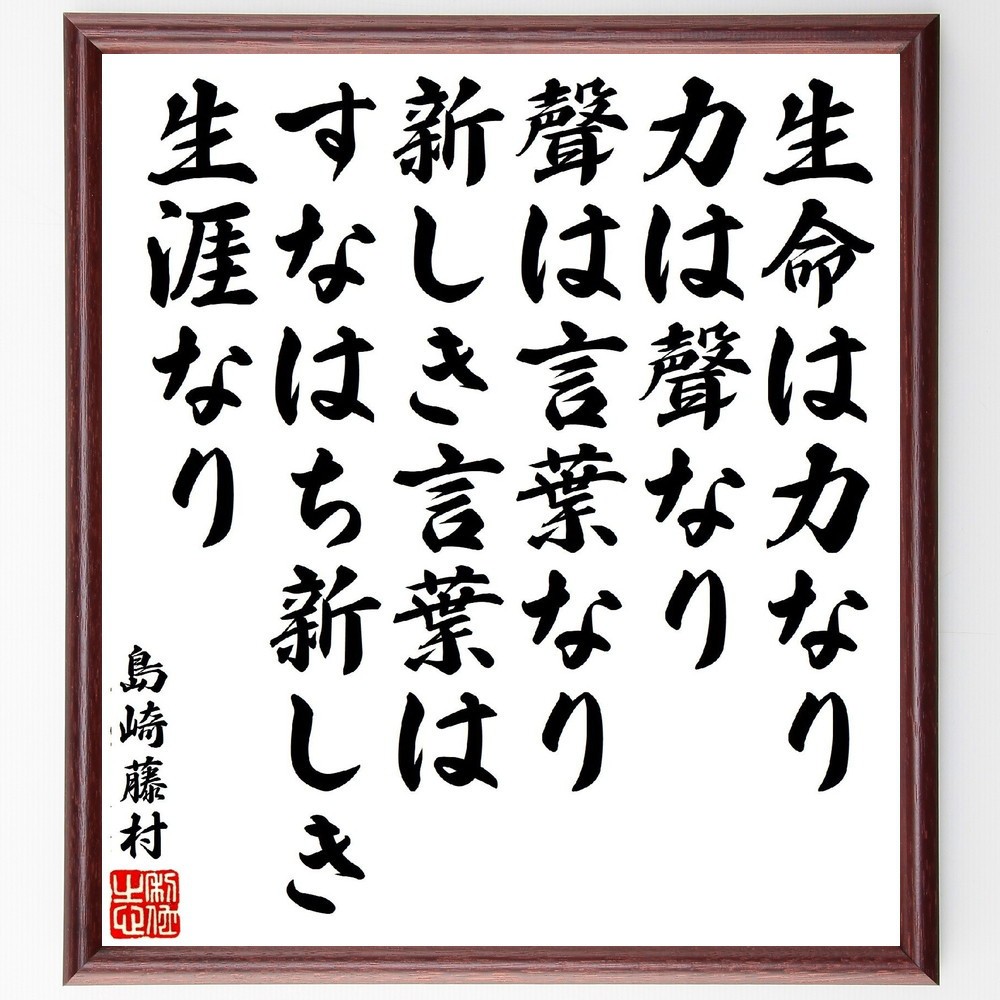 生命は力なり
力は聲なり
聲は言葉なり
新しき言葉は
すなはち新しき
生涯なり
島崎藤村